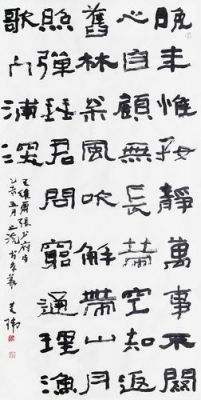 晚年惟好靜萬事不關
心自顧無長策空知返
舊林松風吹解帶山月
照彈琴君問窮通理漁
歌入浦深
王維酬張少府